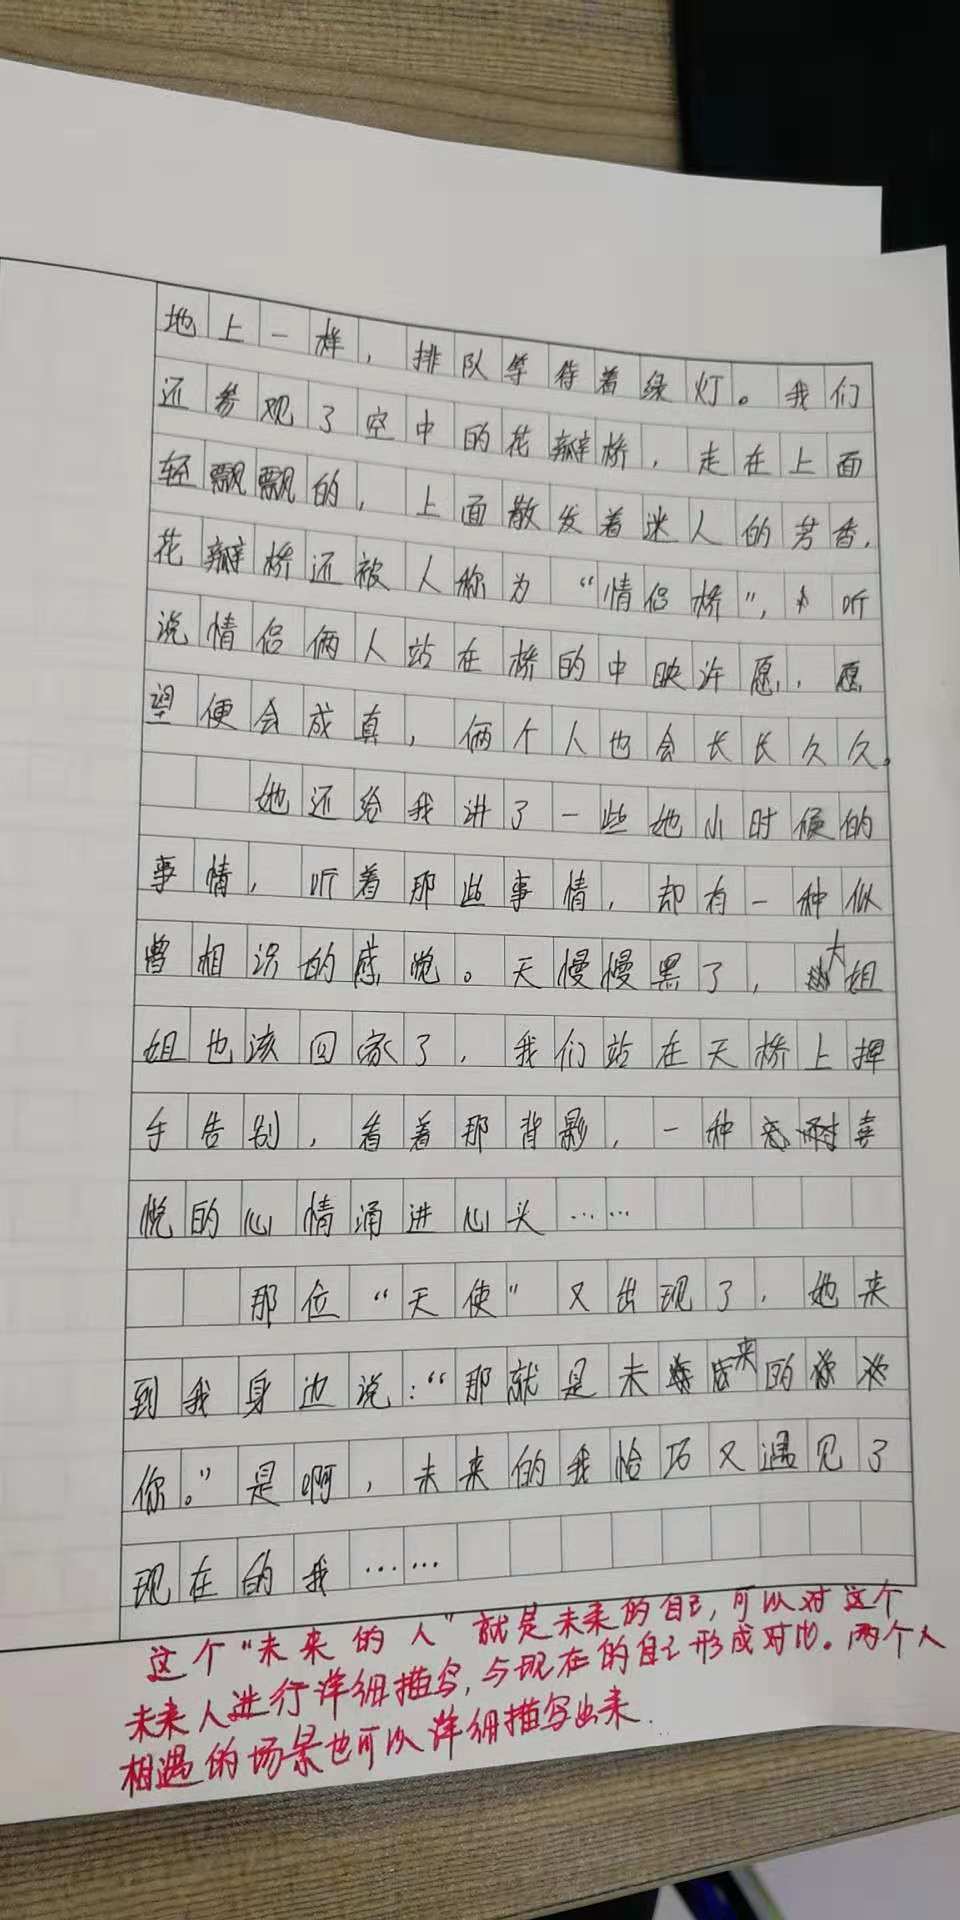 地上一样，排队等待着绿灯。我们
还参观了空中的花瓣桥，走在上面
轻飘飘的，上面散发着迷人的芳香，
花瓣桥还被人称为“情侣桥”，听
说情侣俩人站在桥的中映许愿，愿
望便会成真，俩个人也会长长久久。
她还给我讲了一些她小时候的
事情，听着那些事情，却有一种似
曾相识的感觉。天慢慢黑了，大姐
姐也该回家了，我们站在天桥上挥
手告别，看着那背影，一种喜
悦的心情涌进心头……
那位“天使”又出现了，她来
到我身边说：“那就是未来的
你。”是啊，未来的我恰巧又遇见了
现在的我……
这个“未来的人”就是未来的自己，可以对这个
未来人进行详细描写，与现在的自己形成对比。两个人
相遇的场景也可以详细描写出来.